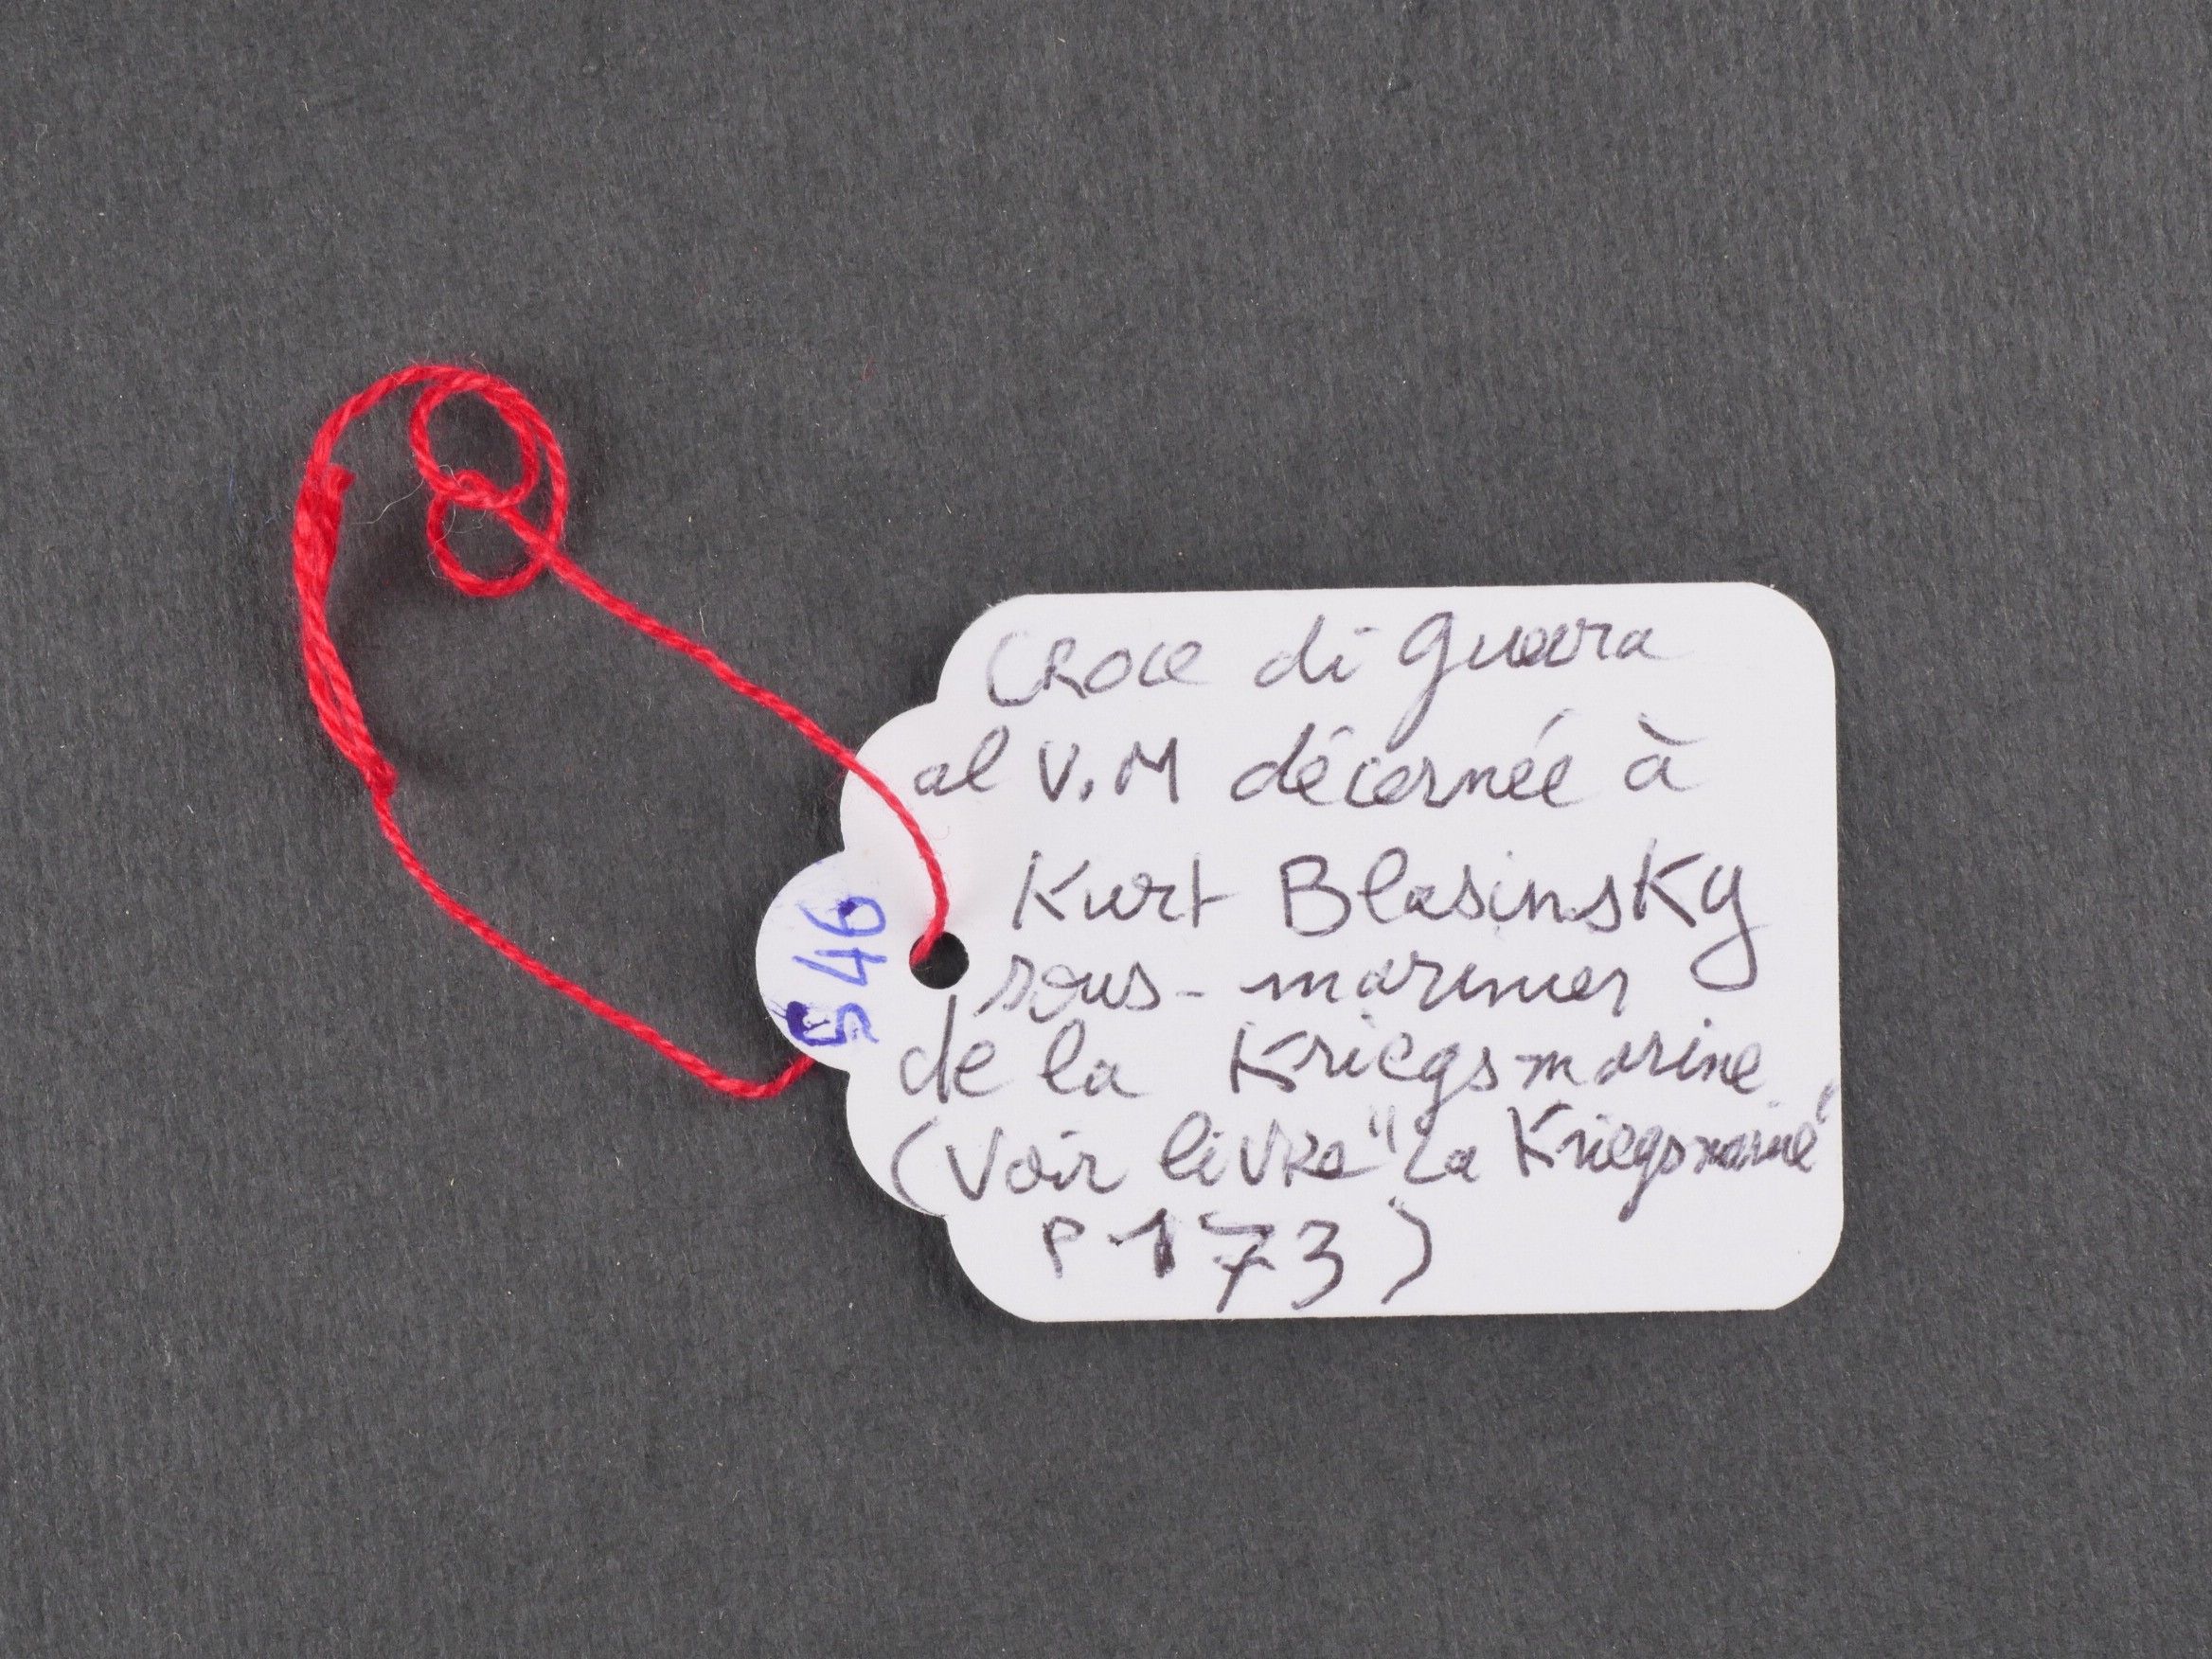 CROCE di guerra
al V.M décernée à
Kurt Blasinsky
sous-marinier
de la Kriegsmarine
(Voir livre "La Kriegsmarine"
P 173)
546